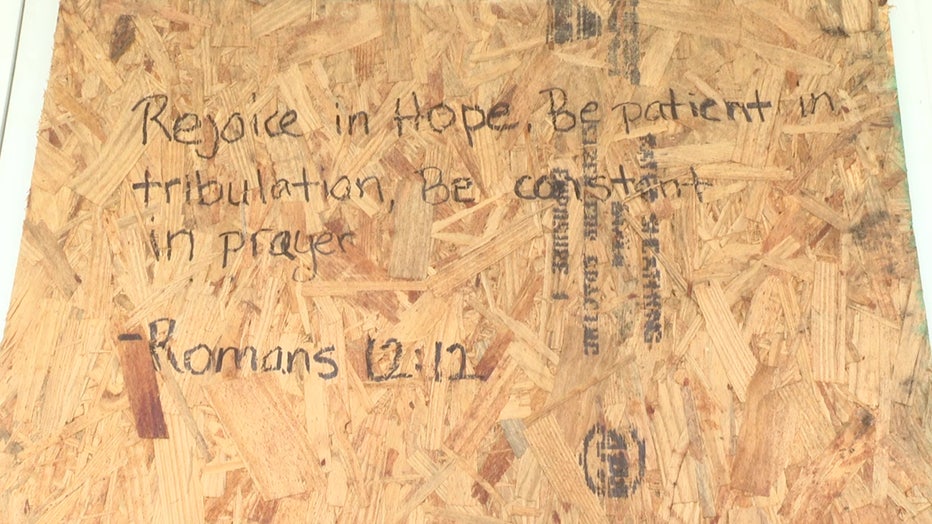 Rejoice in Hope, Be patient in
tribulation, Be constant
in prayer
-Romans 12:12
EXPOSURE 1